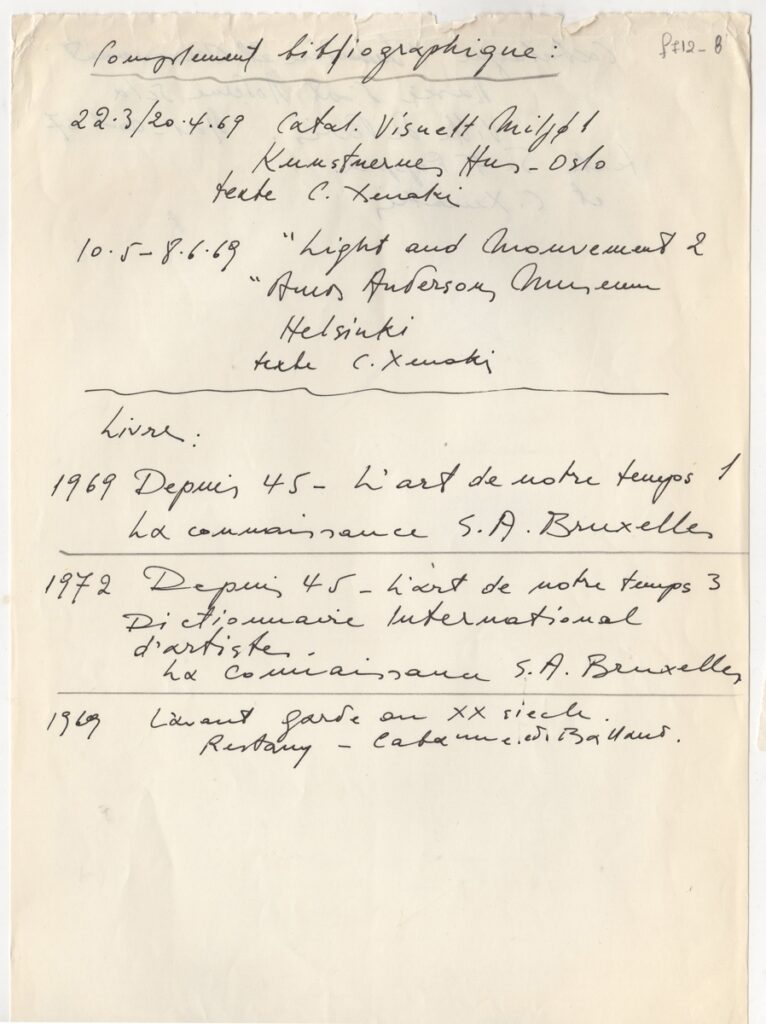 Complement bibliographique :
22.3/20.4.69 Catal. Visuelt Miljø 1
Kunstnernes Hus - Oslo
texte C. Xenaki
10.5-8.6.69 "Light and Mouvement 2
"Amos Andersons Museum
Helsinki
texte C. Xenaki
Livre :
1969 Depuis 45 - L'art de notre temps 1
La connaissance S.A. Bruxelles
1972 Depuis 45 - L'art de notre temps 3
Dictionnaire International
d'artistes.
La connaissance S.A. Bruxelles
1969 L'avant garde au XX siecle.
Restany - Cabanne. ed. Balland.